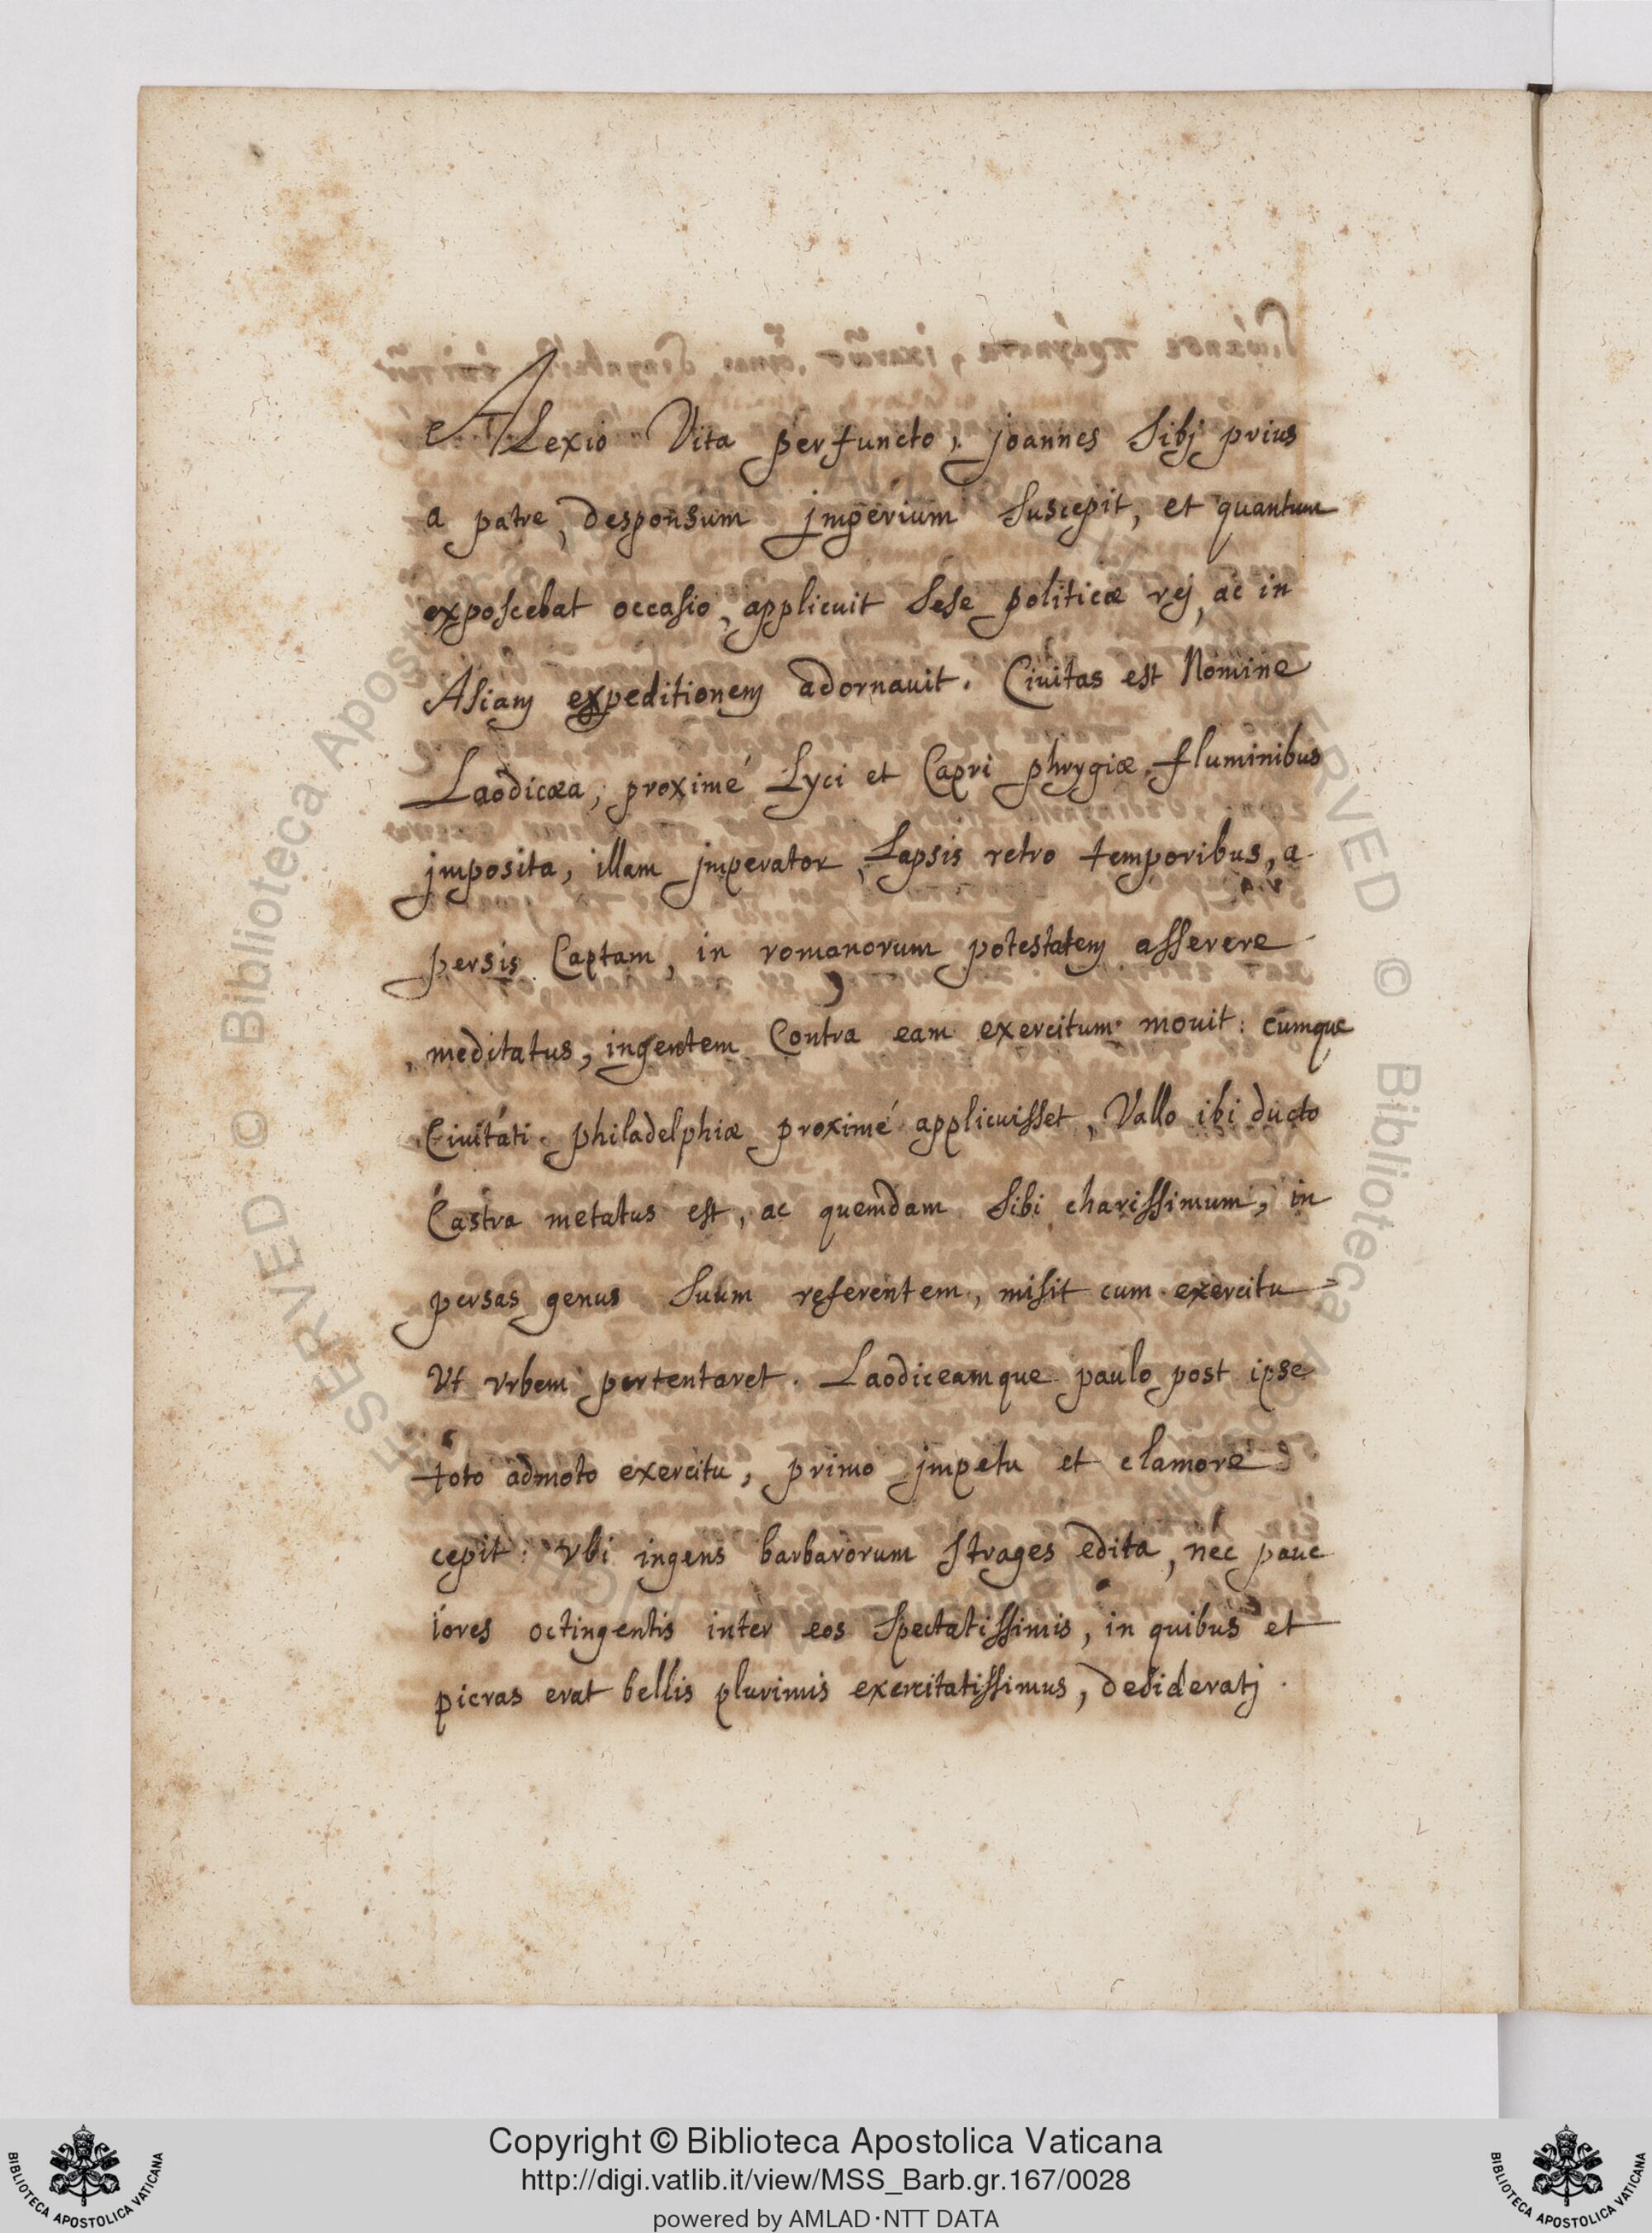 Alexio Vita perfuncto, joannes Sibj prius
a patre, desponsum jmperium Suscepit, et quantum
exposcebat occasio, applicuit Sese politicæ rej, ac in
Asiam expeditionem adornauit. Ciuitas est Nomine
Laodicæa, proximé Lyci et Capri phrygiæ fluminibus
jmposita, illam jmperator, Lapsis retro temporibus, a
persis Captam, in romanorum potestatem asserere
meditatus, ingentem Contra eam exercitum mouit: cumque
Ciuitati philadelphiæ proximé applicuisset, Vallo ibi ducto
Castra metatus est, ac quemdam Sibi charissimum, in
persas genus Suum referentem, misit cum exercitu
Vt vrbem pertentaret. Laodiceamque paulo post ipse
toto admoto exercitu, primo jmpetu et clamore
cepit: vbi ingens barbarorum Strages edita, nec pauc
iores octingentis inter eos Spectatissimis, in quibus et
picras erat bellis plurimis exercitatissimus, desideratj.
Copyright © Biblioteca Apostolica Vaticana
http://digi.vatlib.it/view/MSS_Barb.gr.167/0028
powered by AMLAD·NTT DATA
BIBLIOTECA APOSTOLICA VATICANA
BIBLIOTECA APOSTOLICA VATICANA